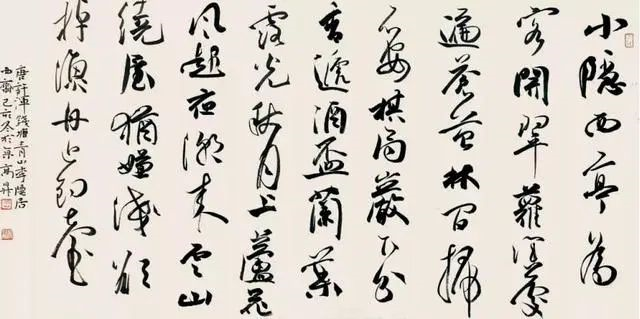 小隱西亭為
客開翠蘿深處
遍蒼苔林間掃
石安棋局巖下分
泉遞酒盃蘭葉
露光秋月上蘆花
風起夜潮來雲山
繞屋猶嫌淺欲
棹漁舟近釣臺
唐許渾錢塘青山李隱居
西齋己亥冬於